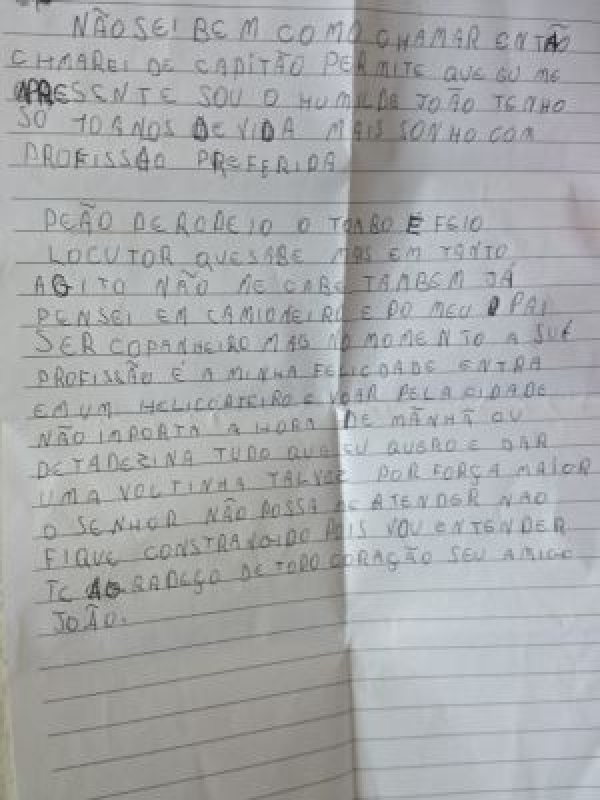 NÃO SEI BEM COMO CHAMAR ENTÃO
CHMAREI DE CAPITÃO PERMITE QUE EU ME
APRESENTE SOU O HUMILDE JOÃO TENHO
SO 10 ANOS DE VIDA MAIS SONHO COM
PROFISSÃO PREFERIDA
PEÃO DE RODEIO O TOMBO É FEIO
LOCUTOR QUE SABE MAS EM TANTO
AGITO NÃO ME CABE TAMBEM JÁ
PENSEI EM CAMIONEIRO E DO MEU PAI
SER COPANHEIRO MAS NO MOMENTO A SUA
PROFISSÃO É A MINHA FELICDADE ENTRA
EM UM HELICOPTEIRO E VOAR PELA CIDADE
NÃO IMPORTA A HORA DE MANHÃ OU
DE TADEZINA TUDO QUE EU QUERO E DAR
UMA VOLTINHA TALVEZ POR FORÇA MAIOR
O SENHOR NÃO POSSA ME ATENDER NAO
FIQUE CONSTRANGIDO POIS VOU ENTENDER
TE AGRADEÇO DE TODO CORAÇÃO SEU AMIGO
JOÃO.